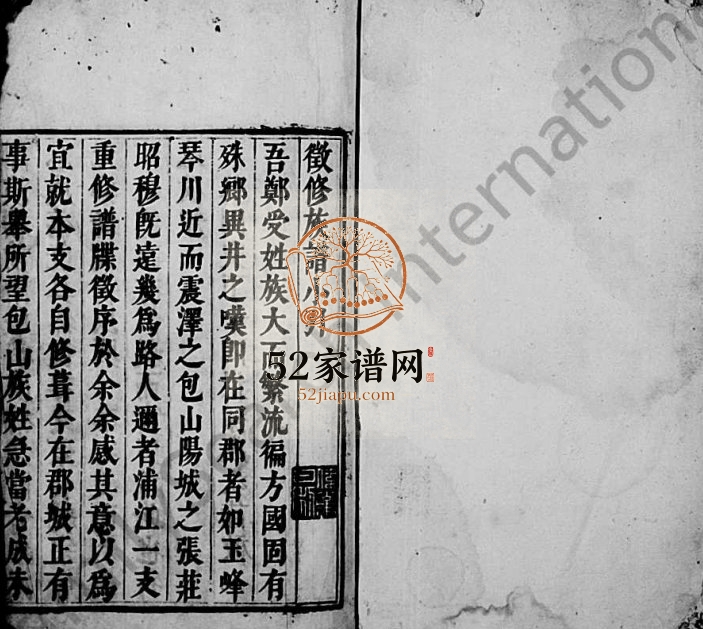 徵修族譜小引
吾鄭受姓族大而繁流徧方國固有
殊鄉異井之嘆即在同郡者如玉峰
琴川近而震澤之包山陽城之張莊
昭穆既遠幾為路人邇者浦江一支
重修譜牒徵序於余余感其意以為
宜就本支各自修葺今在郡城正有
事斯舉所望包山族姓急當老成未
52家谱网
52jiapu.com
International